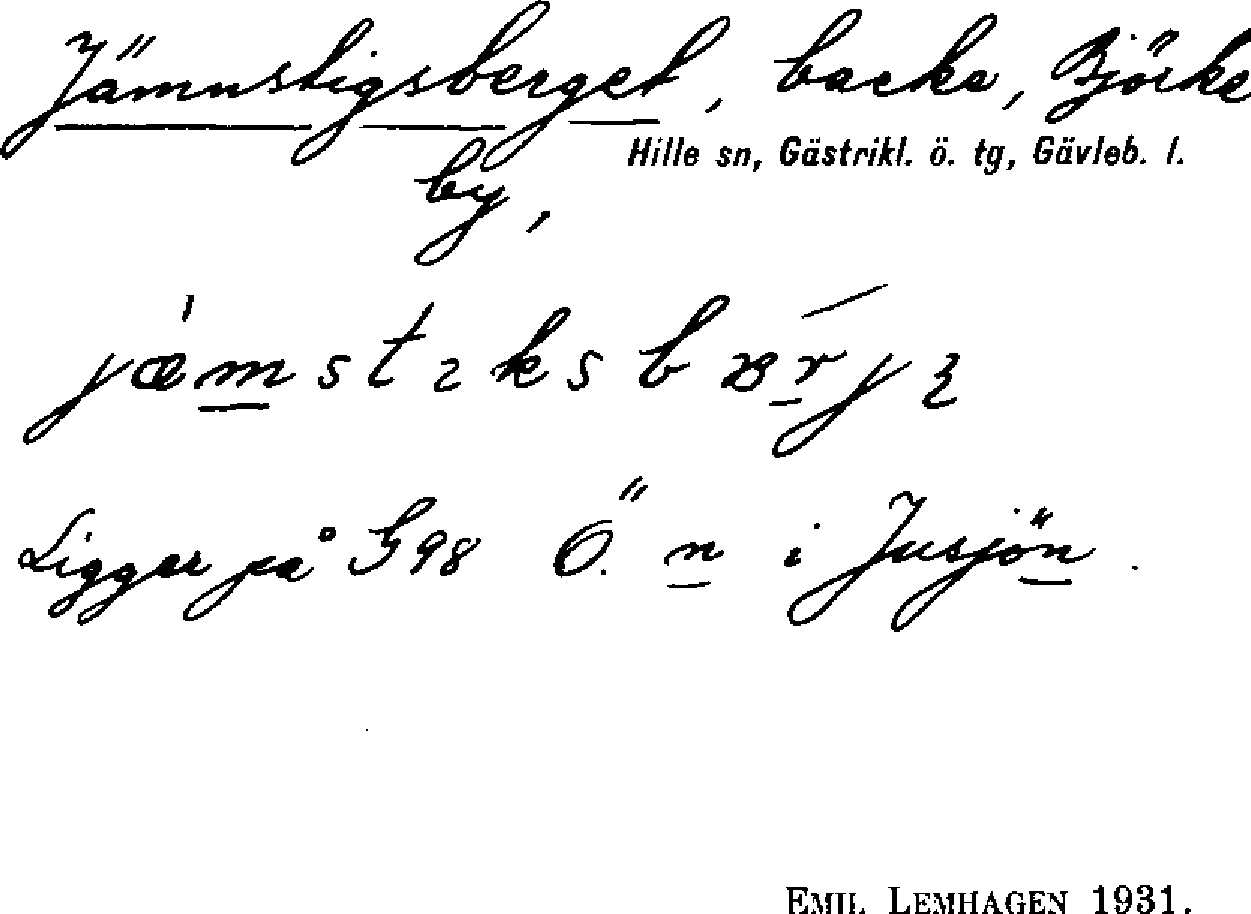 Jämnstigsberget, backe, Björke
Hille sn, Gästrikl. ö. tg, Gävleb. l.
by,
Ligger på G98 Ö. n i Jusjön.
EMIL LEMHAGEN 1931.